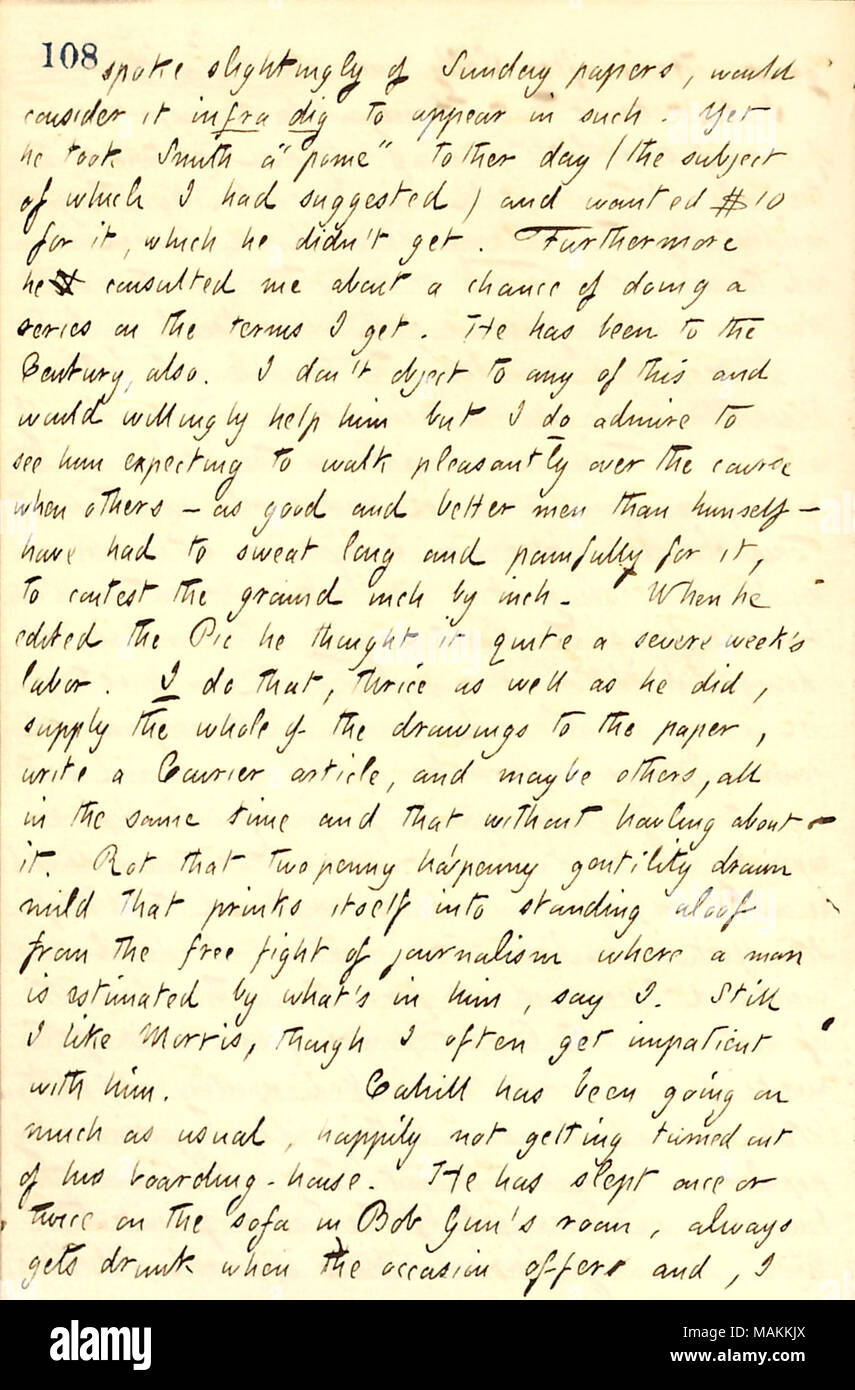 108
spoke slightingly of Sunday papers, would
consider it infra dig to appear in such. Yet
he took Smith a "pome" tother day (the subject
of which I had suggested) and wanted $10
for it, which he didn't get. Furthermore
he consulted me about a chance of doing a
series on the terms I get. He has been to the
Century, also. I don't object to any of this and
would willingly help him but I do admire to
see him expecting to walk pleasantly over the course
when others — as good and better men than himself —
have had to sweat long and painfully for it,
to contest the ground inch by inch. When he
edited the Pic he thought it quite a severe week's
labor. I do that, thrice as well as he did,
supply the whole of the drawings to the paper,
write a Courier article, and maybe others, all
in the same time and that without howling about
it. Rot that twopenny ha'penny gentility drawn
mild that prinks itself into standing aloof
from the free fight of journalism where a man
is estimated by what's in him, say I. Still
I like Morris, though I often get impatient
with him. Cahill has been going on
much as usual, happily not getting turned out
of his boarding-house. He has slept once or
twice on the sofa in Bob Gun's room, always
gets drunk when the occasion offers and, I
alamy
Image ID: MAKKJX
www.alamy.com